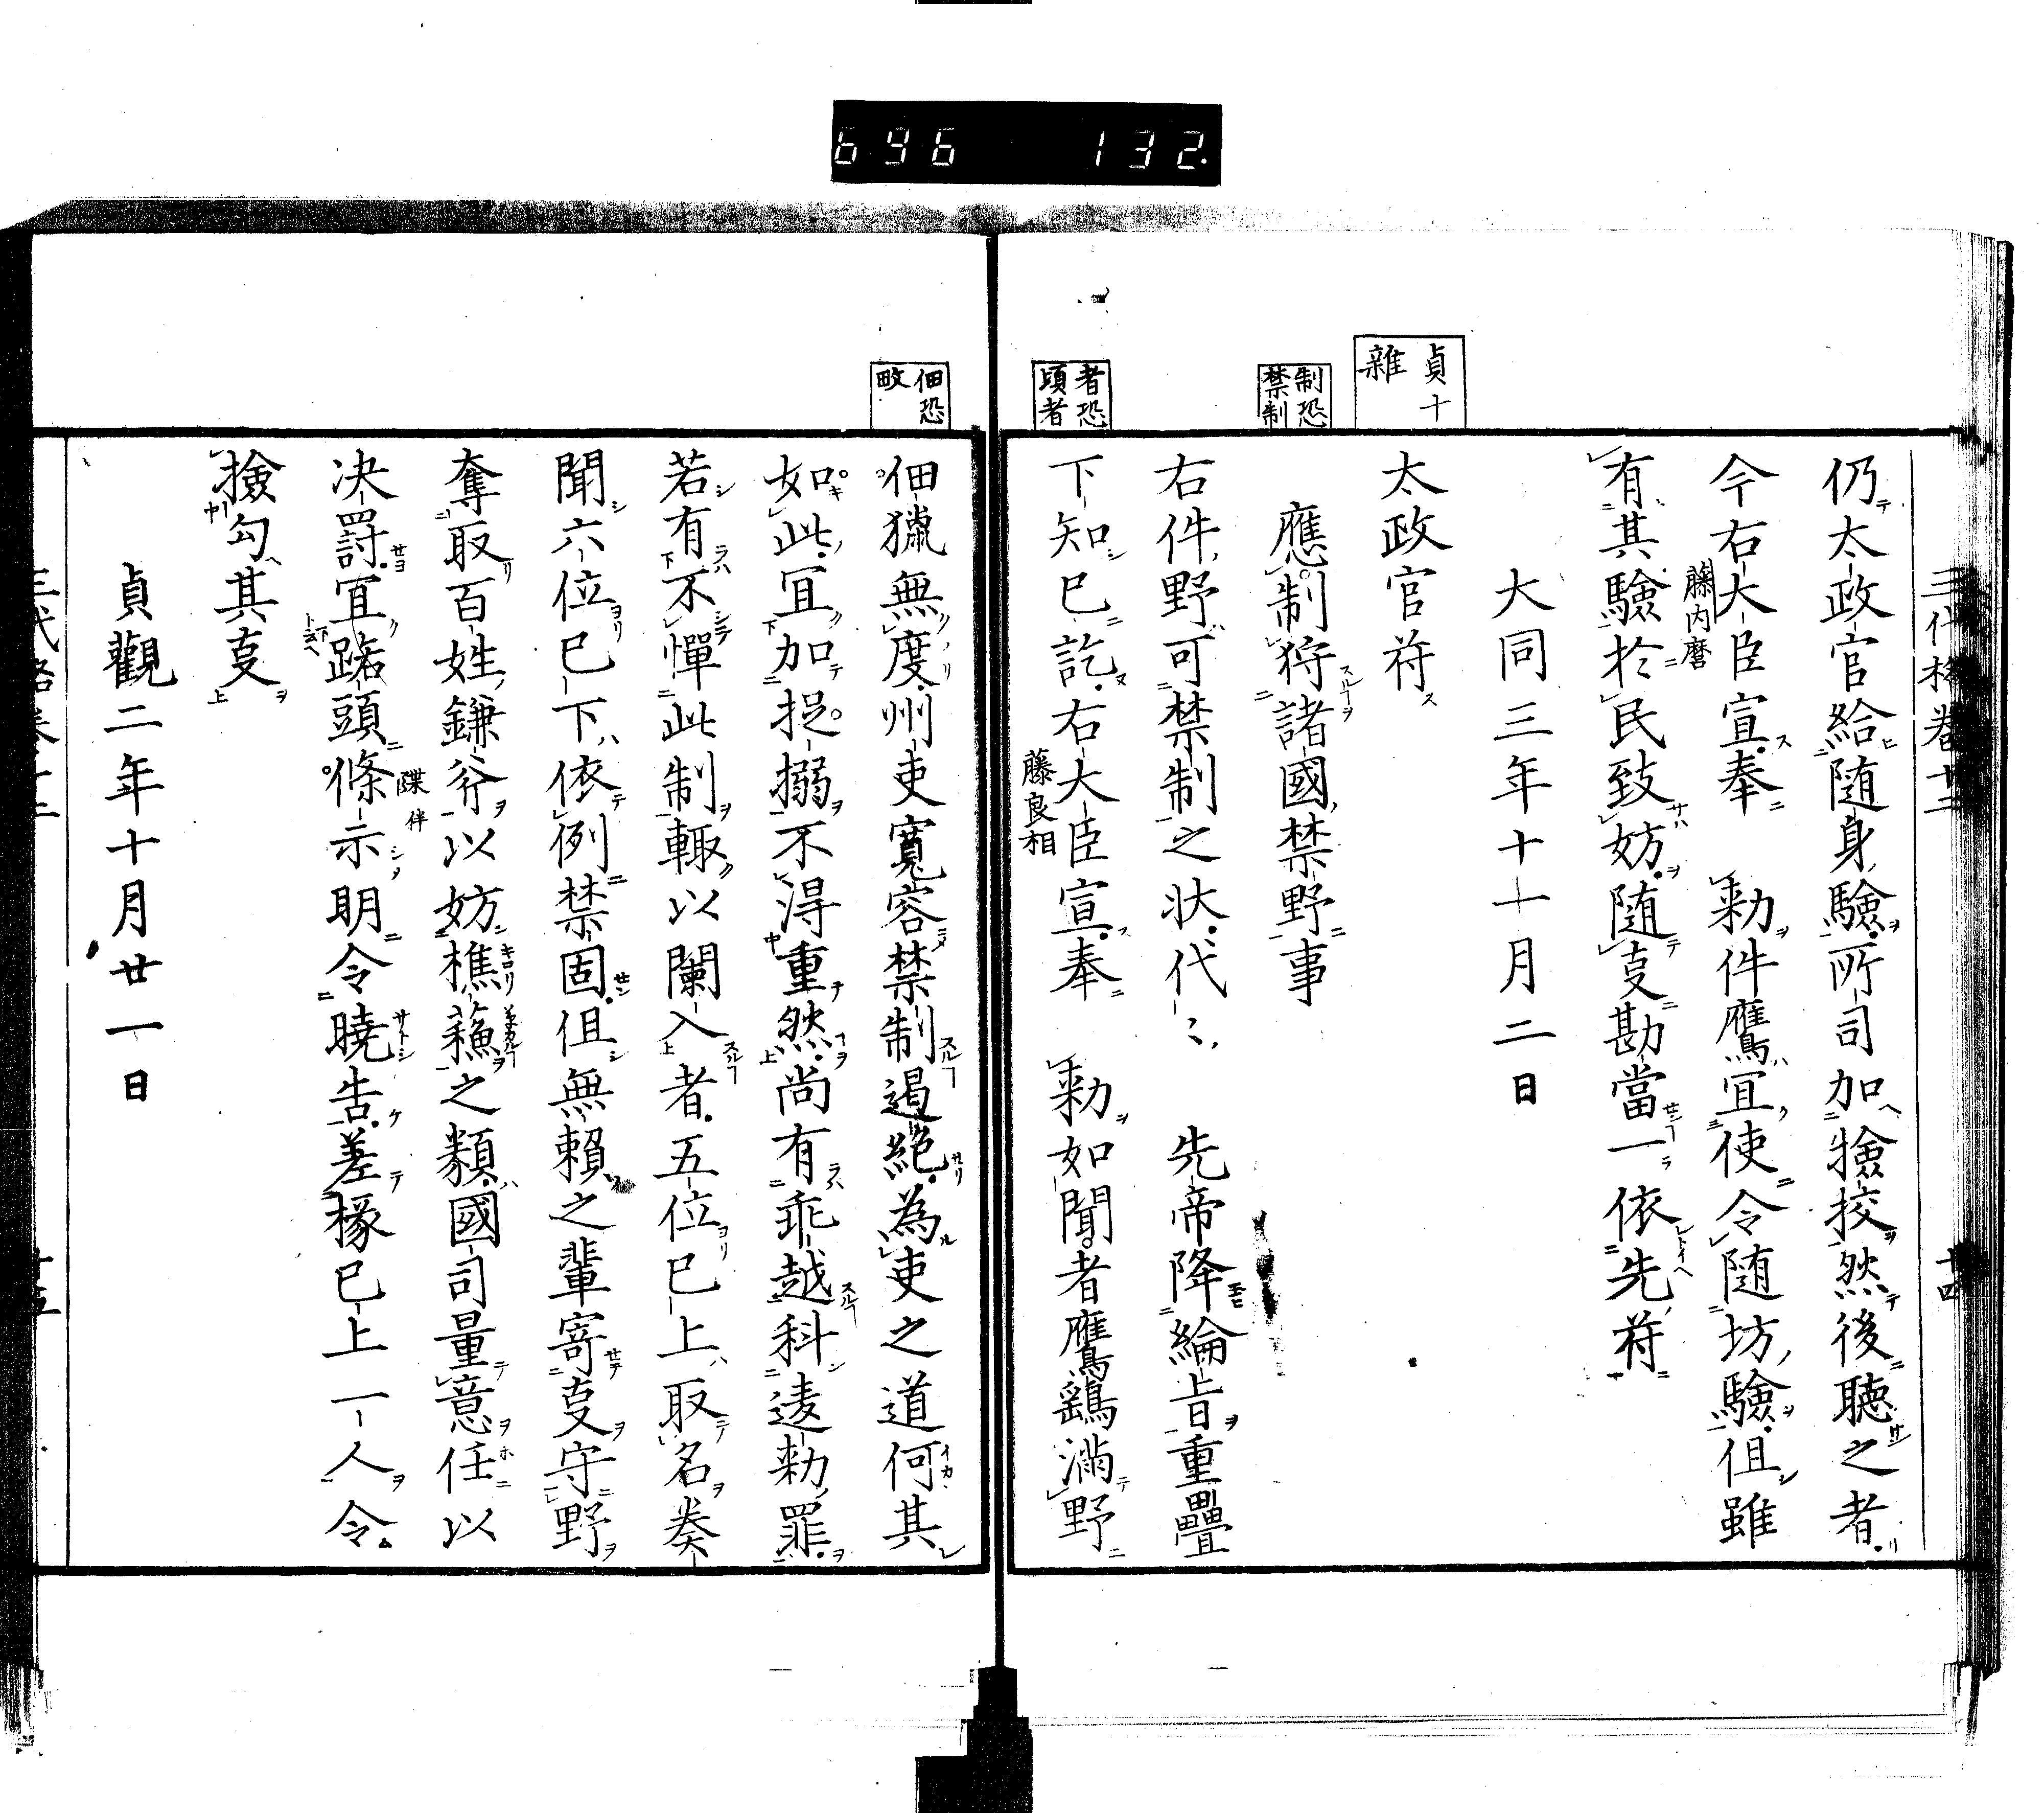 696 132.
三代格卷十二 十四
仍太政官給随身驗所司加撿挍然後聴之者
今右大臣宣奉 勅件鷹宜使令随坊驗但雖
藤内麿
有其驗於民致妨随叓勘當一依先符
大同三年十一月二日
貞十
雜
太政官符
制恐
禁制
應制狩諸國禁野事
右件野可禁制之状代〻 先帝降綸旨重疊
者恐
頃者
下知已訖右大臣宣奉 勅如聞者鷹鷂滿野
藤良相
佃恐
畋
佃獵無度州吏寬容禁制遏絶為吏之道何其
如此宜加捉搦不得重然尚有乖越科違勅罪
若有不憚此制輙以闌入者五位已上取名奏
聞六位已下依例禁固但無賴之輩寄叓守野
奪取百姓鎌斧以妨樵蘓之類國司量意任以
决罸宜蹃頭條示明令曉告差椽已上一人令
牒伴
撿勾其叓
貞觀二年十月廿一日
三代格卷十二 十五